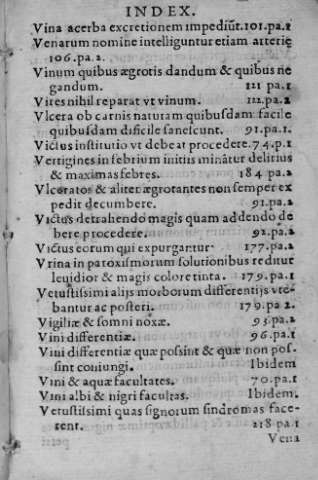 INDEX.
Vina acerba excretionem impediũt. 101. pa. 1
Venarum nomine intelliguntur etiam arterię
106. pa. 2.
Vinum quibus ægrotis dandum & quibus ne
gandum. 121 pa. 1
Vires nihil reparat vt vinum. 122. pa. 2
Vlcera ob carnis naturam quibusdam facile
quibusdam dificile sanescunt. 91. pa. 1.
Victus institutio vt debeat procedere. 74. p. 1
Vertigines in febrium initiis minātur delirius
& maximas febres. 184 pa. 2
Vlceratos & aliter ægrotantes non semper ex
pedit decumbere. 91. pa. 2
Victus detrahendo magis quam addendo de
bere procedere. 92. pa. 2
Victus eorum qui expurgantur. 177. pa. 2
Vrina in paroxismorum solutionibus redditur
leuidior & magis colore tinta. 179. pa. 1
Vetustissimi alijs morborum differentijs vte-
bantur ac posteri. 179. pa 2.
Vigiliæ & somni noxæ. 95. pa. 2
Vini differentiæ. 96. pa. 1
Vini differentiæ quæ possint & quæ non pos-
sint coniungi. Ibidem
Vini & aquæ facultates. 70. pa. 1
Vini albi & nigri facultas. Ibidem.
Vetustissimi quas signorum sindromas face-
rent. 218 pa 1
Vena